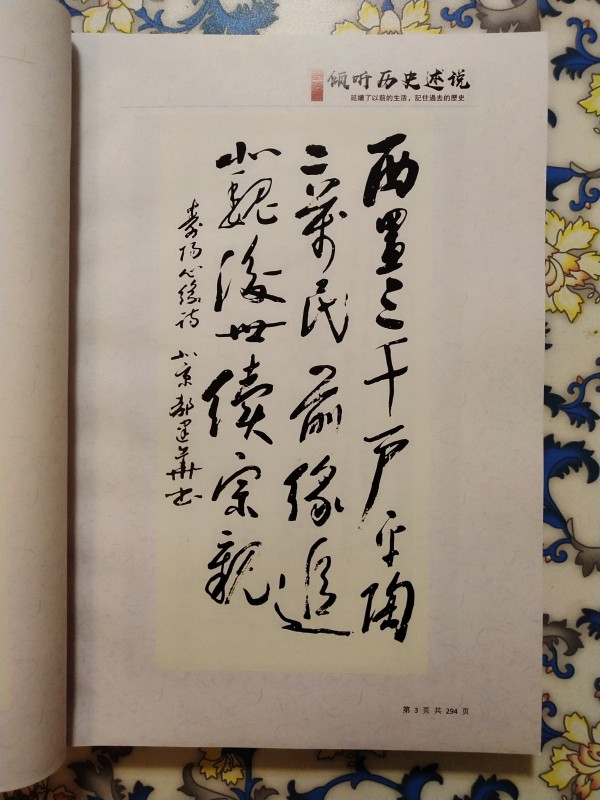 倾听历史述说
延續了以前的生活，記住過去的歷史
西置三千户平陶
二萬民前緣追
北魏後世續宗親
壽陽心緣诗 北京郝建華书
第 3 页 共 294 页